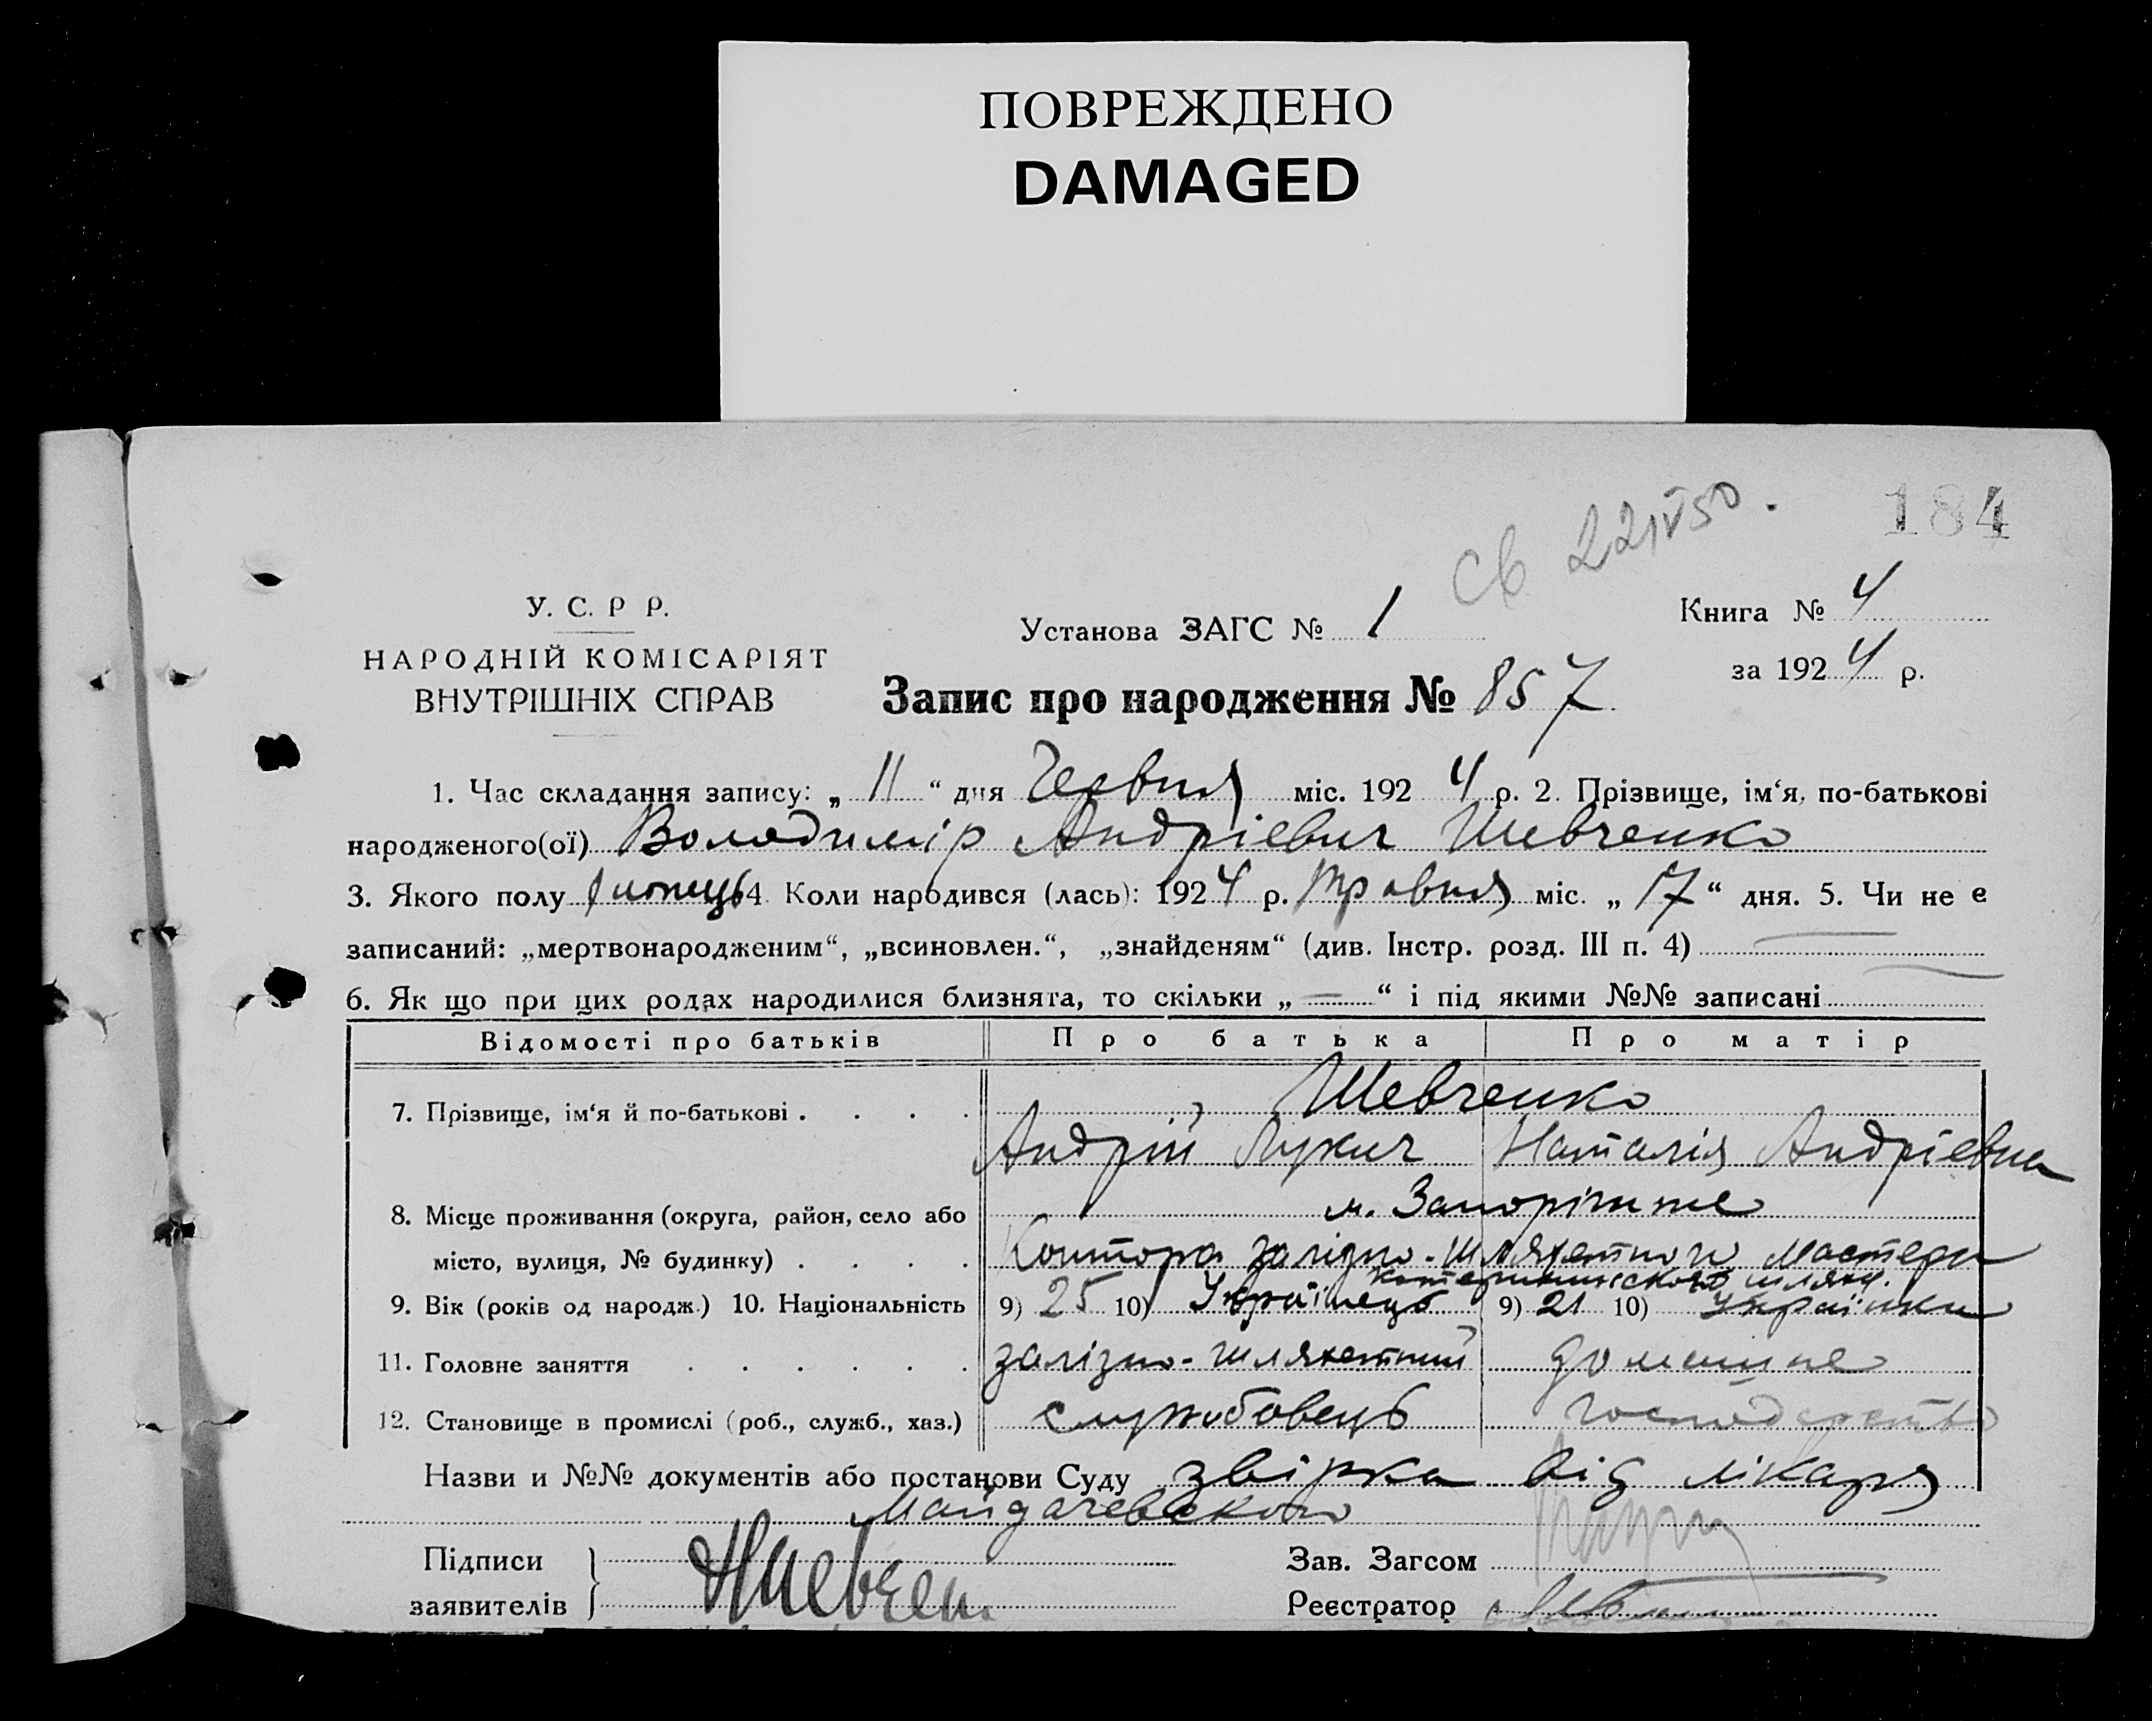 ПОВРЕЖДЕНО
DAMAGED
184
Св 22/V 50.
У. С. Р Р.
НАРОДНІЙ КОМІСАРІЯТ
ВНУТРІШНІХ СПРАВ
Установа ЗАГС № 1
Книга № 4
за 1924 р.
Запис про народження № 857
1. Час складання запису: „ 11 “ дня Червня міс. 1924 р. 2. Прізвище, ім‘я, по-батькові
народженого(ої) Володимір Андрієвич Шевченко
3. Якого полу хлопець 4 Коли народився (лась): 1924 р. Травня міс. „ 17 “ дня. 5. Чи не є
записаний: „мертвонародженим“, „всиновлен.“, „знайденям“ (див. Інстр. розд. III п. 4) —
6. Як що при цих родах народилися близнята, то скільки „ — “ і під якими №№ записані —
Відомості про батьків Про батька Про матір
7. Прізвище, ім‘я й по-батькові . . . . Шевченко
Андрій Лукич Наталія Андрієвна
8. Місце проживання (округа, район, село або м. Запоріжжє
місто, вулиця, № будинку) . . . . Контора залізно-шляхетного мастера
Катерининського шляху.
9. Вік (років од народж.) 10. Національність 9) 25 10) Українець 9) 21 10) Українка
11. Головне заняття . . . . . . залізно-шляхетний домашнє
12. Становище в промислі (роб., служб., хаз.) службовець господарство
Назви и №№ документів або постанови Суду звірка від лікаря
Майдачевского
Підписи
заявителів
НШевчен.
Зав. Загсом
Реєстратор